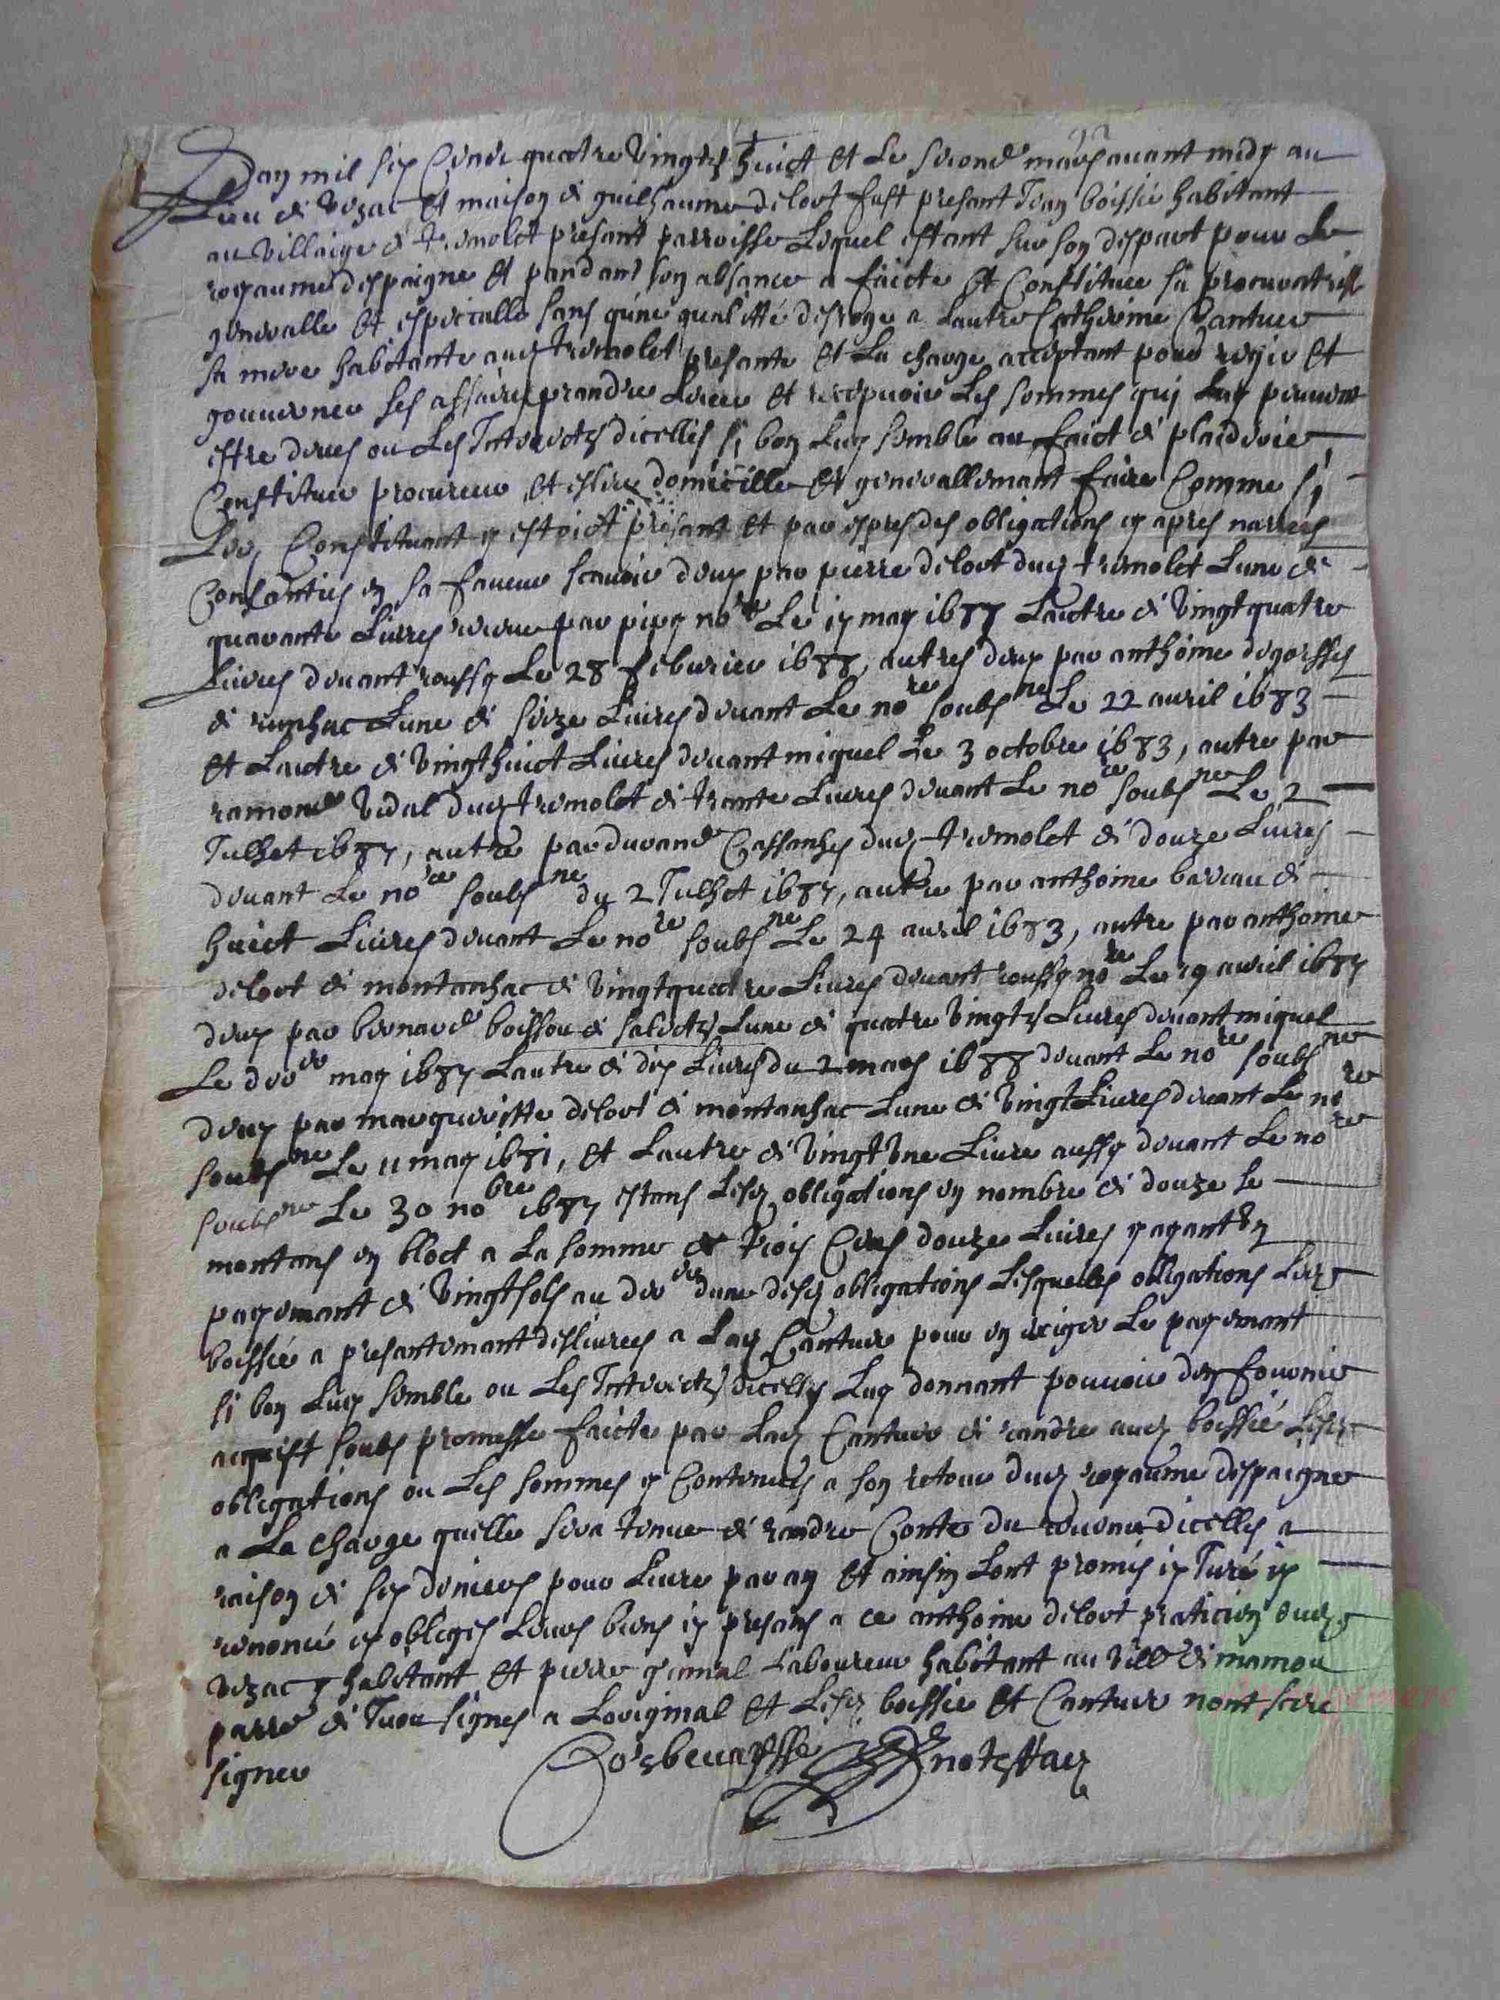 Lan mil six Cens quatre vingts huict et Le second mars avant midy au
Lieu de vezac et maison de guilhaume delort fust presant Jean boissié habitant
au villaige de tremolet presant parroisse Lequel estant sur son despart pour Le
royaume despaigne et pandant son absance a faicte et Constituée sa procuratrisse
generalle et especialle sans qune qualitté desroge a Lautre Catherine Cantuer
sa mere habitante aud tremolet presante et La charge acceptant pour regir et
gouverner ses affaires prandre Lever et recepvoir Les sommes quj Luy peuvent
estre deues ou Les Intherectz dicelles si bon Luy semble au faict de plaidoirie
Constituer procureur et eslire domicille et generallemant faire Comme si
Led Constituant y estoict presant et par expres des obligations cy apres narrées
Consanties en sa faveur scavoir deux par pierre delort dud tremolet Lune de
quarante Livres receue par pipy no.re Le 17 may 1687 Lautre de vingt quatre
Livres devant roussy Le 28 febvrier 1688, autres deux par anthoine degorsses
de runhac Lune de seize Livres devant Le no.re soubs.ne Le 22 avril 1683
et Lautre de vingthuict Livres devant miquel Le 3 octobre 1683, autre par
ramond vidal dud tremolet de trante Livres devant Le no.re soubs.ne Le 2
Julhet 1687, autre par durand Cassanhes dud tremolet de douze Livres
devant Le no.re soubs.ne du 2 Julhet 1687, autre par anthoine barriau de
huict Livres devant Le no.re soubs.ne Le 24 avril 1683, autre par anthoine
delort de montanhac de vingtquatre Livres devant roussy no.re Le 19 avril 1687
deux par bernard boissou de salectz Lune de quatre vingtz Livres devant miquel
Le der.er may 1687 Lautre de dix Livres du 2 mars 1688 devant Le no.re soubs.ne
deux par margueritte delort de montanhac Lune de vingt Livres devant Le no.re
soubs.ne Le 11 may 1681, et Lautre de vingt une Livre aussy devant Le no.re
soubs.ne Le 30 no.bre 1687 estans Lesd obligations en nombre de douze se
montans en bloct a La somme de trois Cens douze Livres y ayant un
payemant de vingt sols au der.er dune desd obligations Lesquelles obligations Led
boissié a presantemant deslivrées a Lad Cantuer pour en exiger Le payemant
si bon Luy semble ou Les Intherectz dicelles Luy donnant pouvoir den fournir
acquist soubs promesse faicte par Lad Cantuer de randre aud boissié Lesd
obligations ou Les sommes y Contenues a son retour dud royaume despaigne
a La charge quelle sera tenue de randre Conte du revenu dicelles a
raison de six deniers pour Livre par an et ainsin Lont promis et Juré et
renoncé et obligés Leurs biens et presans a ce anthoine delort praticien dud
vezac y habitant et pierre gimal Laboureur habitant au ville de mamou
parre de Jvou signes a Loriginal et Lesd boissié et Cantuer nont sceu
signer